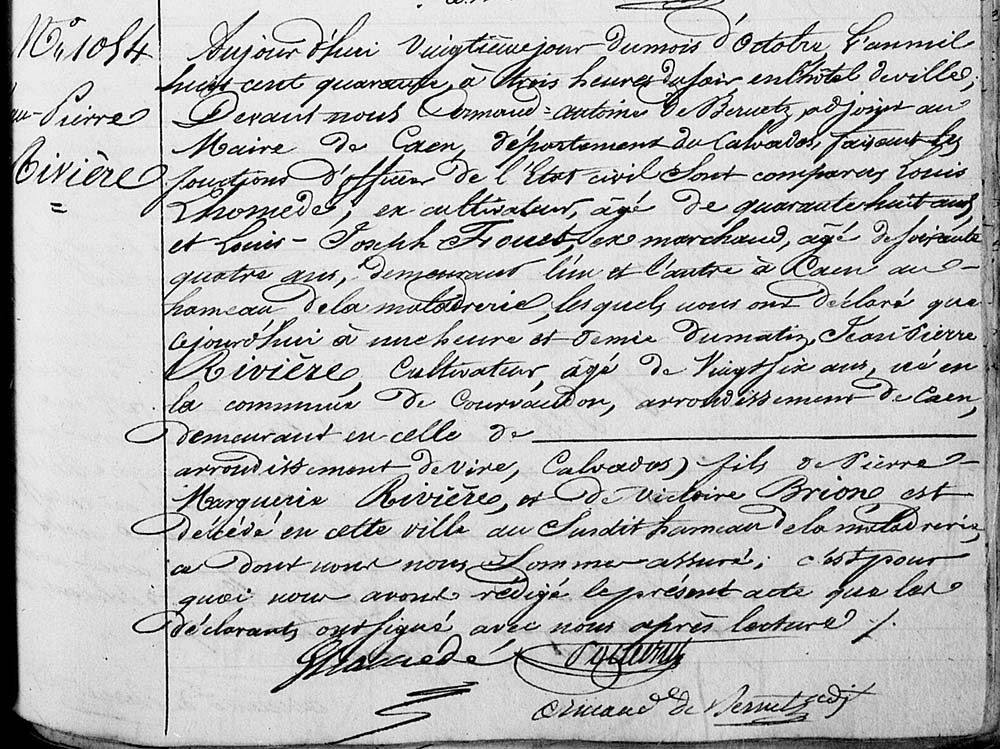 No 1054
Pierre
Rivière
Aujourd'hui Vingtième jour du mois d'Octobre l'an mil
huit cent quarante, à trois heures du soir en l'hôtel de ville,
Devant nous Armand-antoine de Bernetz adjoint au
Maire de Caen, département du Calvados, faisant les
fonctions d'officier de l'Etat civil Sont comparus Louis
Lhomedé, ex cultivateur, âgé de quarante huit ans,
et Louis-Joseph Fouet, ex marchand, âgé de soixante
quatre ans, demeurant l'un et l'autre à Caen au
hameau de la maladrerie, lesquels nous ont déclaré que
cejourd'hui à une heure et demie du matin, Jean Pierre
Rivière, Cultivateur, âgé de Vingt six ans, né en
la commune de Courvaudon, arrondissement de Caen,
demeurant en celle de
arrondissement de Vire, Calvados, fils de Pierre-
Marguerin Rivière, et de Victoire Brion, est
décédé en cette ville au Susdit hameau de la maladrerie,
ce dont nous nous Sommes assuré; c'est pour
quoi nous avons rédigé le présent acte que les
déclarants ont signé avec nous après lecture ./.
Lhomedé
Armand de Bernetz adj